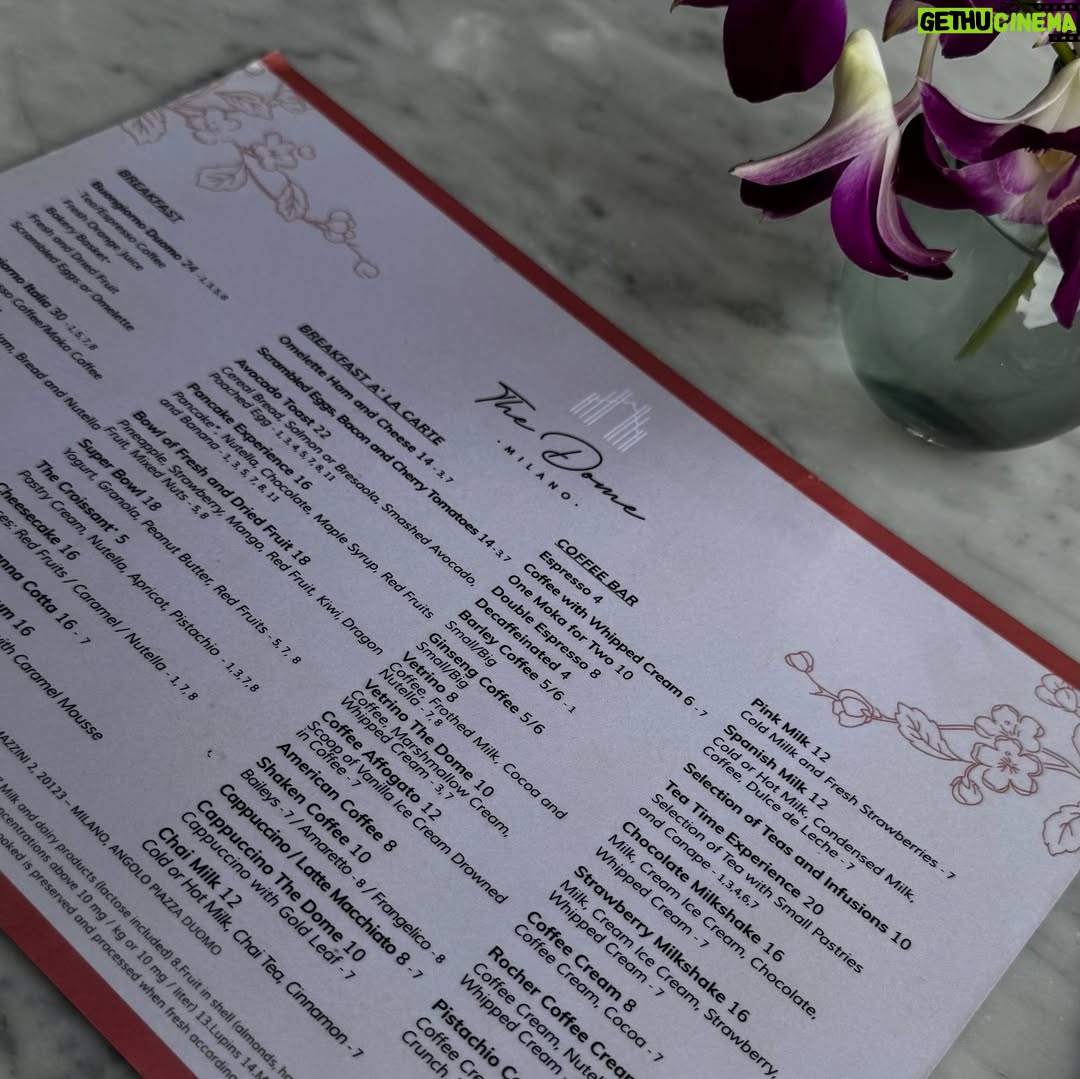 GETHUCINEMA
BREAKFAST
Buongiorno Duomo 24 - 1,3,5,8
Tea/Espresso Coffee
Fresh Orange Juice
Bakery Basket*
Fresh and Dried Fruit
Scrambled Eggs or Omelette
Italia 30 - 1,5,7,8
Coffee/Moka Coffee
Bread and Nutella
BREAKFAST A' LA CARTE
Omelette Ham and Cheese 14 - 3,7
Scrambled Eggs, Bacon and Cherry Tomatoes 14 - 3,7
Avocado Toast 22
Cereal Bread, Salmon or Bresaola, Smashed Avocado,
Poached Egg - 1,3,4,5,7,8,11
Pancake Experience 16
Pancake*, Nutella, Chocolate, Maple Syrup, Red Fruits
and Banana - 1,3,5,7,8,11
Bowl of Fresh and Dried Fruit 18
Pineapple, Strawberry, Mango, Red Fruit, Kiwi, Dragon
Fruit, Mixed Nuts - 5,8
Super Bowl 18
Yogurt, Granola, Peanut Butter, Red Fruits - 5, 7, 8
The Croissant* 5
Pastry Cream, Nutella, Apricot, Pistachio - 1,3,7,8
Cheesecake 16
Red Fruits / Caramel / Nutella - 1, 7, 8
Cotta 16 - 7
16
with Caramel Mouse
The Dome
• MILANO •
COFFEE BAR
Espresso 4
Coffee with Whipped Cream 6 - 7
One Moka for Two 10
Double Espresso 8
Decaffeinated 4
Barley Coffee 5/6 - 1
Small/Big
Ginseng Coffee 5/6
Small/Big
Vetrino 8
Coffee, Frothed Milk, Cocoa and
Nutella - 7,8
Vetrino The Dome 10
Coffee, Marshmallow Cream,
Whipped Cream - 3,7
Coffee Affogato 12
Scoop of Vanilla Ice Cream Drowned
in Coffee - 7
American Coffee 8
Shaken Coffee 10
Baileys - 7 / Amaretto - 8 / Frangelico - 8
Cappuccino / Latte Macchiato 8 - 7
Cappuccino The Dome 10
Cappuccino with Gold Leaf - 7
Chai Milk 12
Cold or Hot Milk, Chai Tea, Cinnamon - 7
Pink Milk 12
Cold Milk and Fresh Strawberries - 7
Spanish Milk 12
Cold or Hot Milk, Condensed Milk,
Coffee, Dulce de Leche - 7
Selection of Teas and Infusions 10
Tea Time Experience 20
Selection of Tea with Small Pastries
and Canape - 1,3,4,6,7
Chocolate Milkshake 16
Milk, Cream Ice Cream, Chocolate,
Whipped Cream - 7
Strawberry Milkshake 16
Milk, Cream Ice Cream, Strawberry,
Whipped Cream - 7
Coffee Cream 8
Coffee Cream, Cocoa - 7
Rocher Coffee Cream
Coffee Cream,
Whipped Cream
Pistachio
Coffee
Crunch
MAZZINI 2, 20123 – MILANO, ANGOLO PIAZZA DUOMO
Milk and dairy products (lactose included) 8.Fruit in shell (almonds,
above 10 mg / kg or 10 mg / liter) 13.Lupins
is preserved and processed when fresh